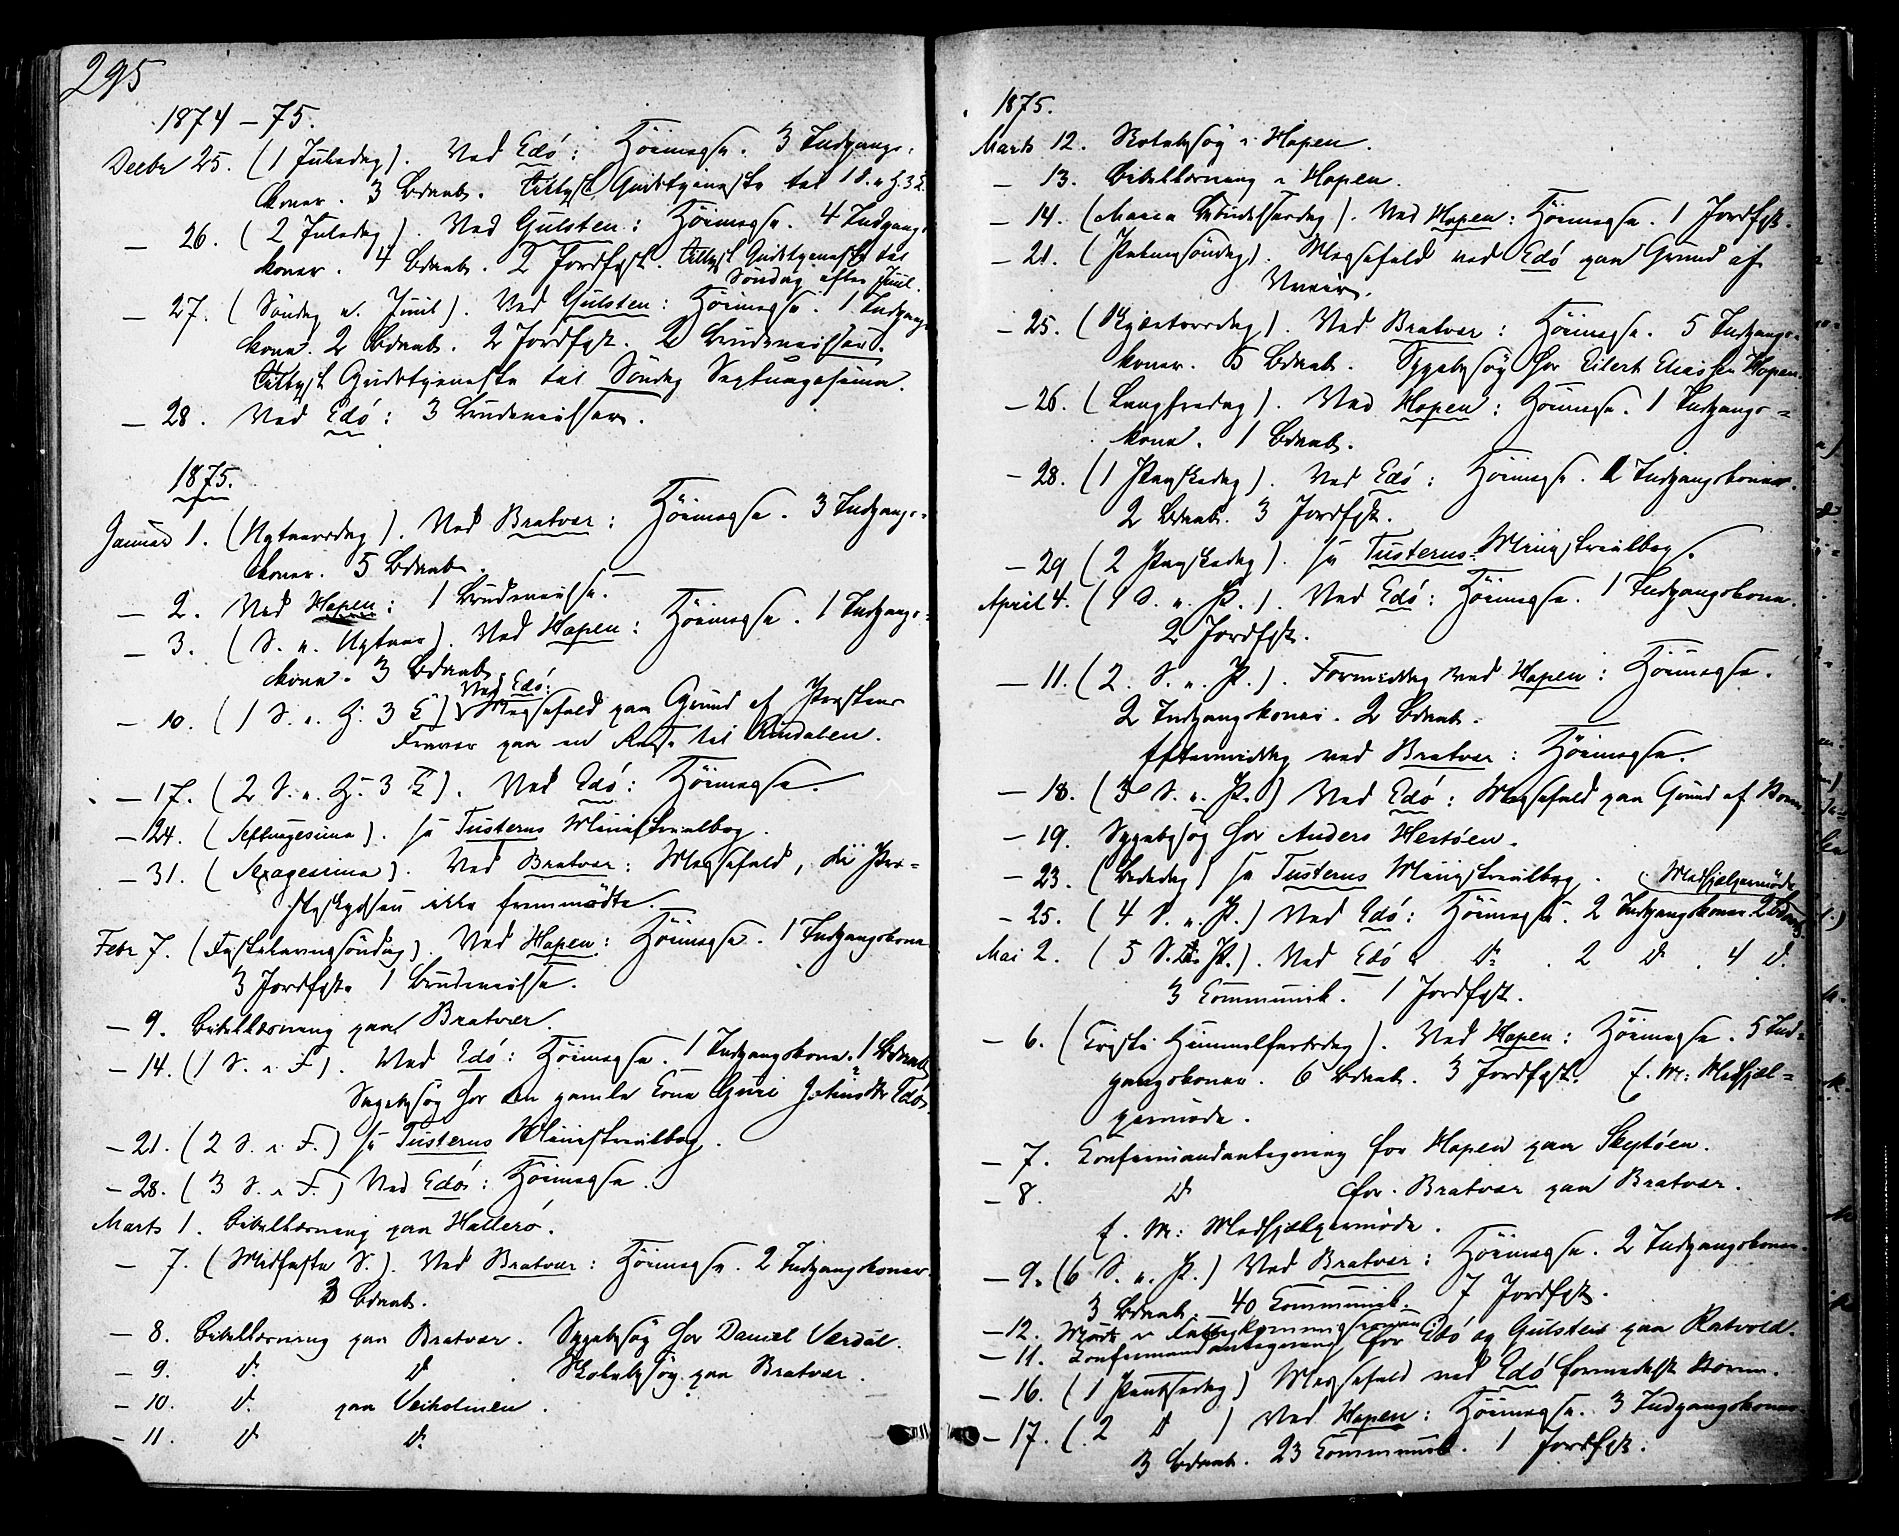 295
1874 – 75.
Decbr 25. (1 Juledag). Ved Edö: Höimesse. 3 Indgangs-
koner. 3 Bdaab. Tillyst Gudstjeneste til 1 S. e. H. 3 K.
— 26. (2 Juledag). Ved Gulsten: Höimesse. 4 Indgangs-
koner. 4 Bdaab. 2 Jordfest. Tillyst Gudstjeneste til
Söndag efter Juul.
— 27. (Söndag e. Juul). Ved Gulsten: Höimesse. 1 Indgangs-
kone. 2 Bdaab. 2 Jordfest. 2 Brudevielser.
Tillyst Gudstjeneste til Söndag Septuagesima.
— 28. Ved Edö: 3 Brudevielser.
1875.
Januar 1. (Nytaarsdag). Ved Bratvær: Höimesse. 3 Indgangs-
koner. 5 Bdaab.
— 2. Ved Hopen: 1 Brudevielse.
— 3. (S. e. Nytaar). Ved Hopen: Höimesse. 1 Indgangs-
kone. 3 Bdaab.
Ved Edö:
— 10. (1 S. e. H. 3 K) Messefald paa Grund af Præstens
Fravær paa en Reise til Rindalen.
— 17. (2 S. e. H. 3 K). Ved Edö: Höimesse.
— 24. (Septuagesima). se Tusterns Ministerialbog.
— 31. (Sexagesima). Ved Bratvær: Messefald, da Præ-
steskydsen ikke fremmödte.
Febr 7. (Fastelavnssöndag). Ved Hopen: Höimesse. 1 Indgangskone
3 Jordfest. 1 Brudevielse.
— 9. Bibellæsning paa Bratvær.
— 14. (1 S. i F). Ved Edö: Höimesse. 1 Indgangskone. 1 Bdaab
Sygebesög hos den gamle Kone Guri Edö.
— 21. (2 S. i F.) se Tusterns Ministerialbog.
— 28. (3 S. i F.) Ved Edö: Höimesse.
Marts 1. Bibellæsning paa Hallerö.
— 7. (Midfaste S.). Ved Bratvær: Höimesse. 2 Indgangskoner.
3 Bdaab.
— 8. Bibellæsning paa Bratvær. Sygebesög hos Daniel Værdal.
— 9. do do Skolebesög paa Bratvær.
— 10. do paa Veiholmen.
— 11. do do
1875.
Marts 12. Skolebesög i Hopen.
— 13. Bibellæsning i Hopen.
— 14. (Maria Bebudelsesdag). Ved Hopen: Höimesse. 1 Jordfest.
— 21. (Palmesöndag). Messefald ved Edö paa Grund af
Uveir.
— 25. (Skjærtorsdag). Ved Bratvær: Höimesse. 5 Indgangs-
koner. 5 Bdaab. Sygebesög hos Eilert Eliassen Hopen.
— 26. (Langfredag). Ved Hopen: Höimesse. 1 Indgangs-
kone. 1 Bdaab.
— 28. (1 Paaskedag). Ved Edö: Höimesse. 2 Indgangskoner.
2 Bdaab. 3 Jordfest.
— 29 (2 Paaskedag). se Tusterns Ministerialbog.
April 4. (1 S. e. P.). Ved Edö: Höimesse. 1 Indgangskone.
2 Jordfest.
— 11. (2. S. e. P.). Formiddag ved Hopen: Höimesse.
2 Indgangskoner. 2 Bdaab.
Eftermiddag ved Bratvær: Höimesse.
— 18. (3 S. e. P.) Ved Edö: Messefald paa Grund af Storm.
— 19. Sygebesög hos Anders Hestöen.
— 23. (Bededag) se Tusterns Ministerialbog. Medhjælpermöde
— 25. (4 S. e. P.) Ved Edö: Höimesse. 2 Indgangskoner. 2 Bdaab.
Mai 2. (5 S. e. P.). Ved Edö: do. 2 do. 4 do.
3 Communik. 1 Jordfest.
— 6. (Kristi Himmelfartsdag). Ved Hopen: Höimesse. 5 Ind-
gangskoner. 6 Bdaab. 3 Jordfest. E. M: Medhjæl-
permöde.
— 7. Konfirmandantegning for Hopen paa Skjetöen.
— 8. do for Bratvær paa Bratvær.
E. M: Medhjælpermöde.
— 9. (6 S. e. P.) Ved Bratvær: Höimesse. 2 Indgangskoner.
3 Bdaab. 40 Communik. 7 Jordfest.
— 12. Möde i Fattigkommissionen
— 11. Konfirmandantegning for Edö og Gulsten paa Ratvold.
— 16. (1 Pintsedag) Messefald ved Edö formedelst Storm.
— 17. (2 do) Ved Hopen: Höimesse. 3 Indgangskoner
3 Bdaab. 23 Communik. 1 Jordfest.